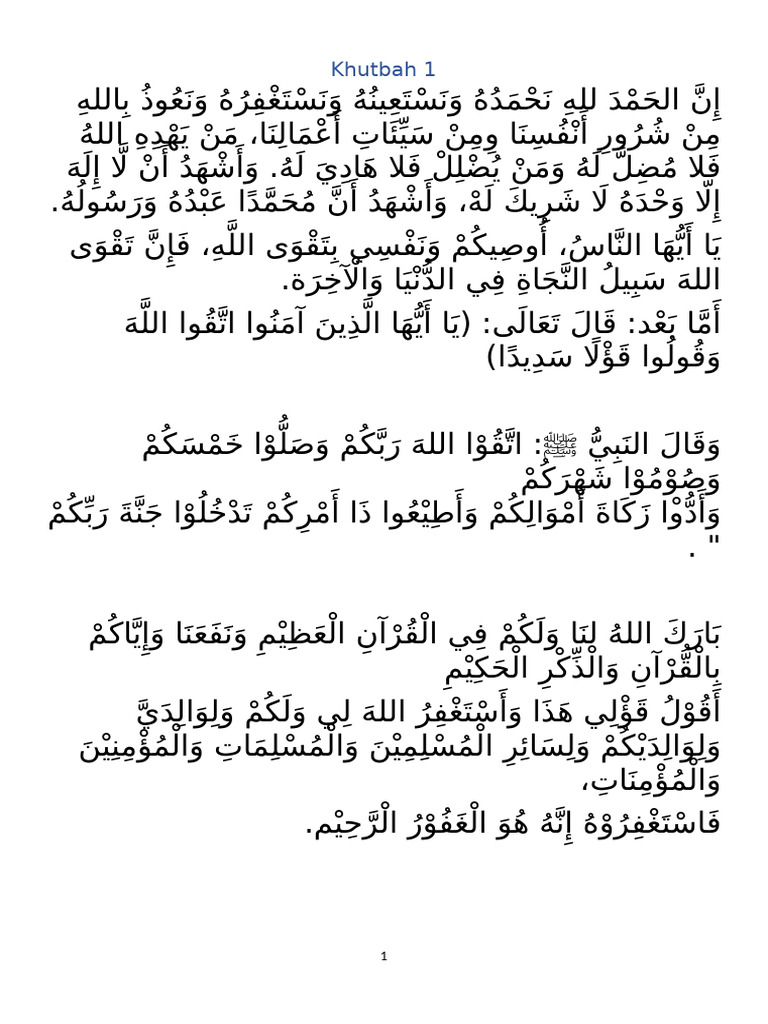 Khutbah 1
إِنَّ الحَمْدَ للهِ نَحْمَدُهُ وَنَسْتَعِينُهُ وَنَسْتَغْفِرُهُ وَنَعُوذُ بِاللهِ
مِنْ شُرُورِ أَنْفُسِنَا وِمِنْ سَيِّئَاتِ أَعْمَالِنَا، مَنْ يَهْدِهِ اللهُ
فَلا مُضِلَّ لَهُ وَمَنْ يُضْلِلْ فَلا هَادِيَ لَهُ. وَأَشْهَدُ أَنْ لَّا إِلَهَ
إِلّا وَحْدَهُ لَا شَرِيكَ لَهْ، وَأَشْهَدُ أَنَّ مُحَمَّدًا عَبْدُهُ وَرَسُولُهُ.
يَا أَيُّهَا النَّاسُ، أُوصِيكُمْ وَنَفْسِي بِتَقْوَى اللَّهِ، فَإِنَّ تَقْوَى
اللهَ سَبِيلُ النَّجَاةِ فِي الدُّنْيَا وَالْآخِرَة.
أَمَّا بَعْد: قَالَ تَعَالَى: (يَا أَيُّهَا الَّذِينَ آمَنُوا اتَّقُوا اللَّهَ
وَقُولُوا قَوْلًا سَدِيدًا)
وَقَالَ النَبِيُّ ﷺ: اتَّقُوْا اللهَ رَبَّكُمْ وَصَلُّوْا خَمْسَكُمْ
وَصُوْمُوْا شَهْرَكُمْ
وَأَدُّوْا زَكَاةَ أَمْوَالِكُمْ وَأَطِيْعُوا ذَا أَمْرِكُمْ تَدْخُلُوْا جَنَّةَ رَبِّكُمْ
" .
بَارَكَ اللهُ لنَا وَلَكُمْ فِي الْقُرْآنِ الْعَظِيْمِ وَنَفَعَنَا وَإِيَّاكُمْ
بِالْقُرْآنِ وَالْذِّكْرِ الْحَكِيْمِ
أَقُوْلُ قَوْلِي هَذَا وَأَسْتَغْفِرُ اللهَ لِي وَلَكُمْ وَلِوَالِدَيَّ
وَلِوَالِدَيْكُمْ وَلِسَائِرِ الْمُسْلِمِيْنَ وَالْمُسْلِمَاتِ وَالْمُؤْمِنِيْنَ
وَالْمُؤْمِنَاتِ،
فَاسْتَغْفِرُوْهُ إِنَّهُ هُوَ الْغَفُوْرُ الْرَّحِيْم.
1